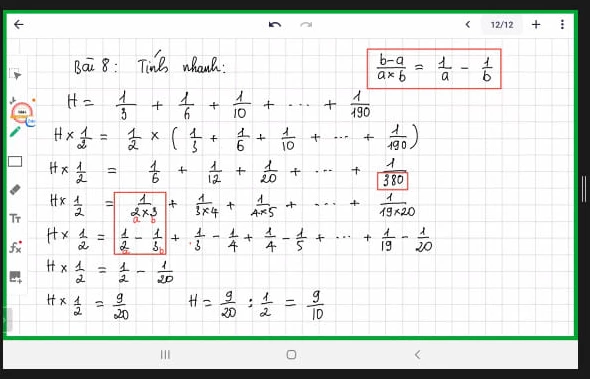 12/12
Bài 8: Tính nhanh:
(b-a)/(a×b) = 1/a - 1/b
H = 1/3 + 1/6 + 1/10 + ... + 1/190
H × 1/2 = 1/2 × (1/3 + 1/6 + 1/10 + ... + 1/190)
H × 1/2 = 1/6 + 1/12 + 1/20 + ... + 1/380
H × 1/2 = 1/(2×3) + 1/(3×4) + 1/(4×5) + ... + 1/(19×20)
a b
H × 1/2 = 1/2 - 1/3 + 1/3 - 1/4 + 1/4 - 1/5 + ... + 1/19 - 1/20
a b
H × 1/2 = 1/2 - 1/20
H × 1/2 = 9/20 H = 9/20 : 1/2 = 9/10
Tт
fx